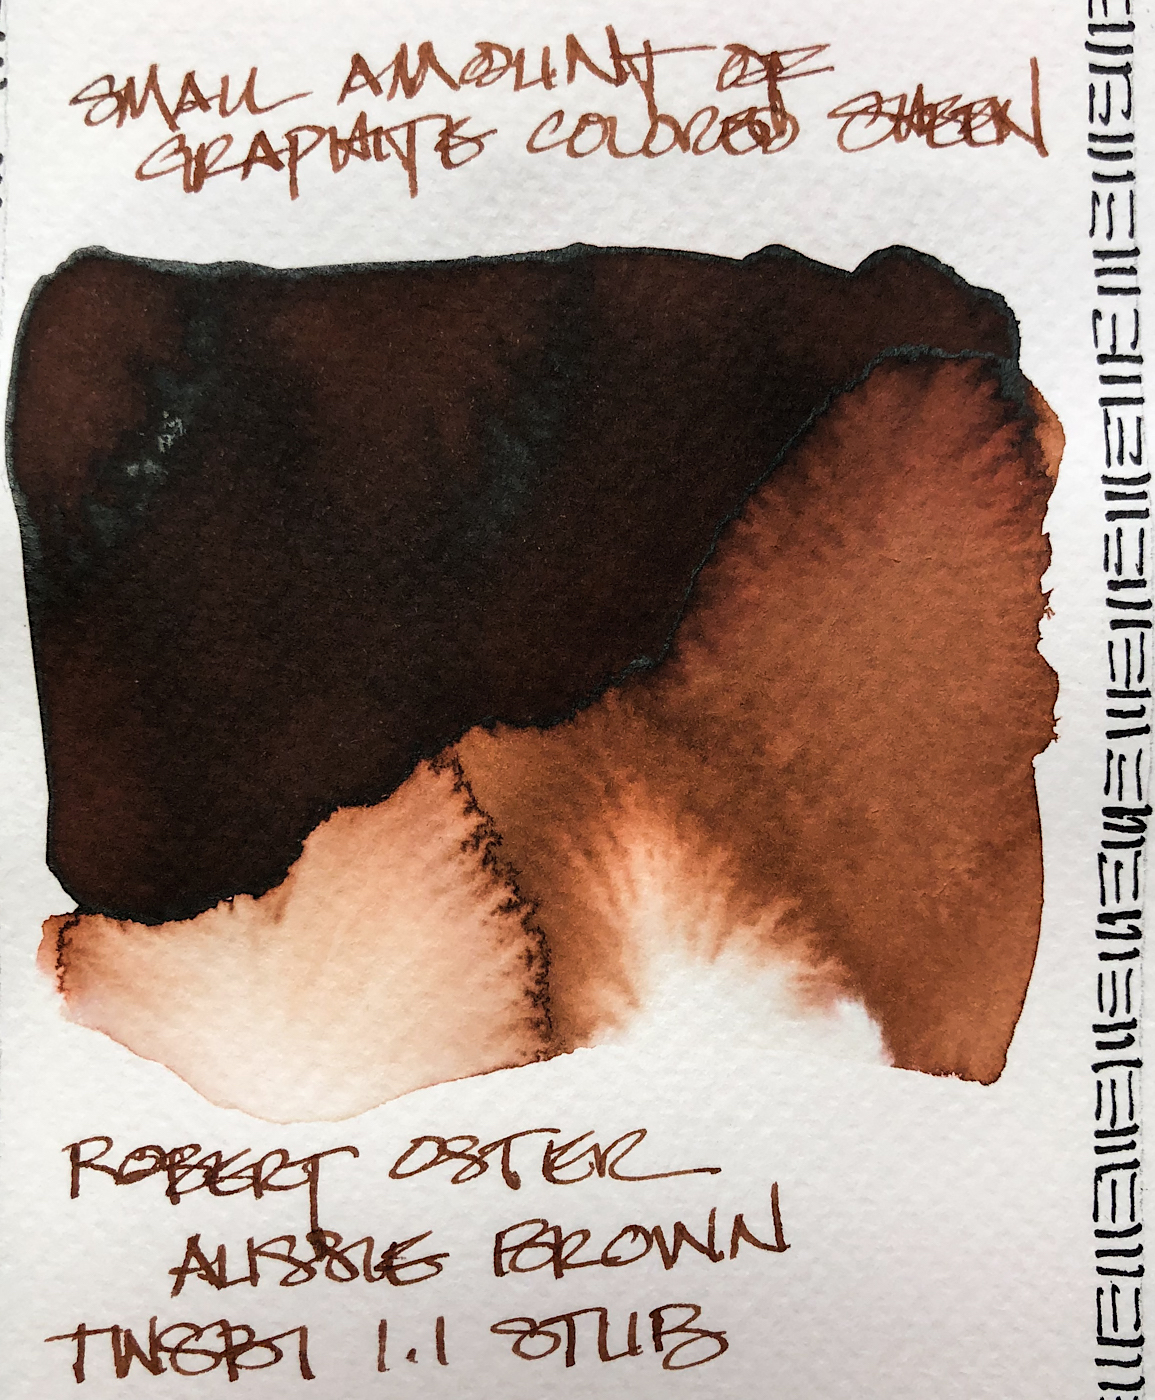 SMALL AMOUNT OF
GRAPHITE COLORED SHEEN
ROBERT OSTER
AUSSIE BROWN
TWSBI 1.1 STUB